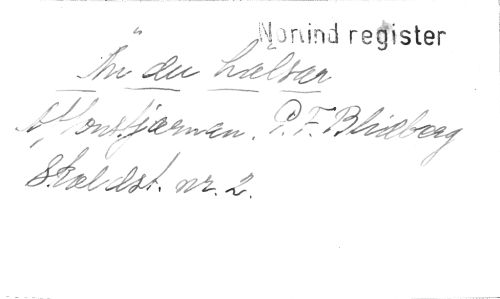 Norlind register
Än du hälsar
Aftonstjärnan. P. F. Blidberg
Sköldst. nr. 2.